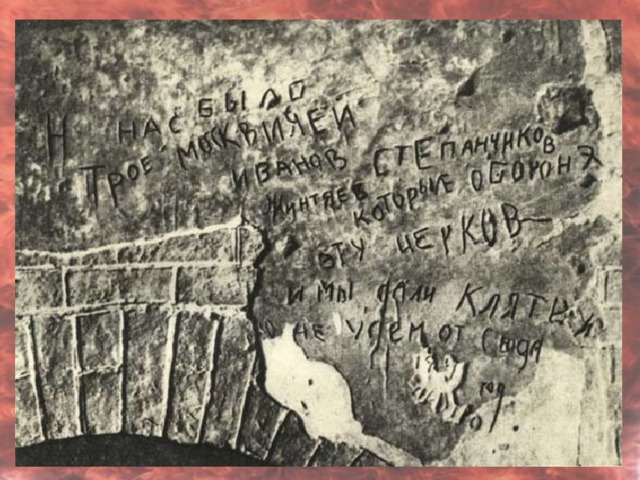 НАС БЫЛО
ТРОЕ МОСКВИЧЕЙ
ИВАНОВ СТЕПАНЧИКОВ
ЖИНТЯЕВ КОТОРЫЕ ОБОРОНЯ
ЭТУ ЦЕРКОВ
И МЫ ДАЛИ
НЕ УДЕМ ОТ СЮДА